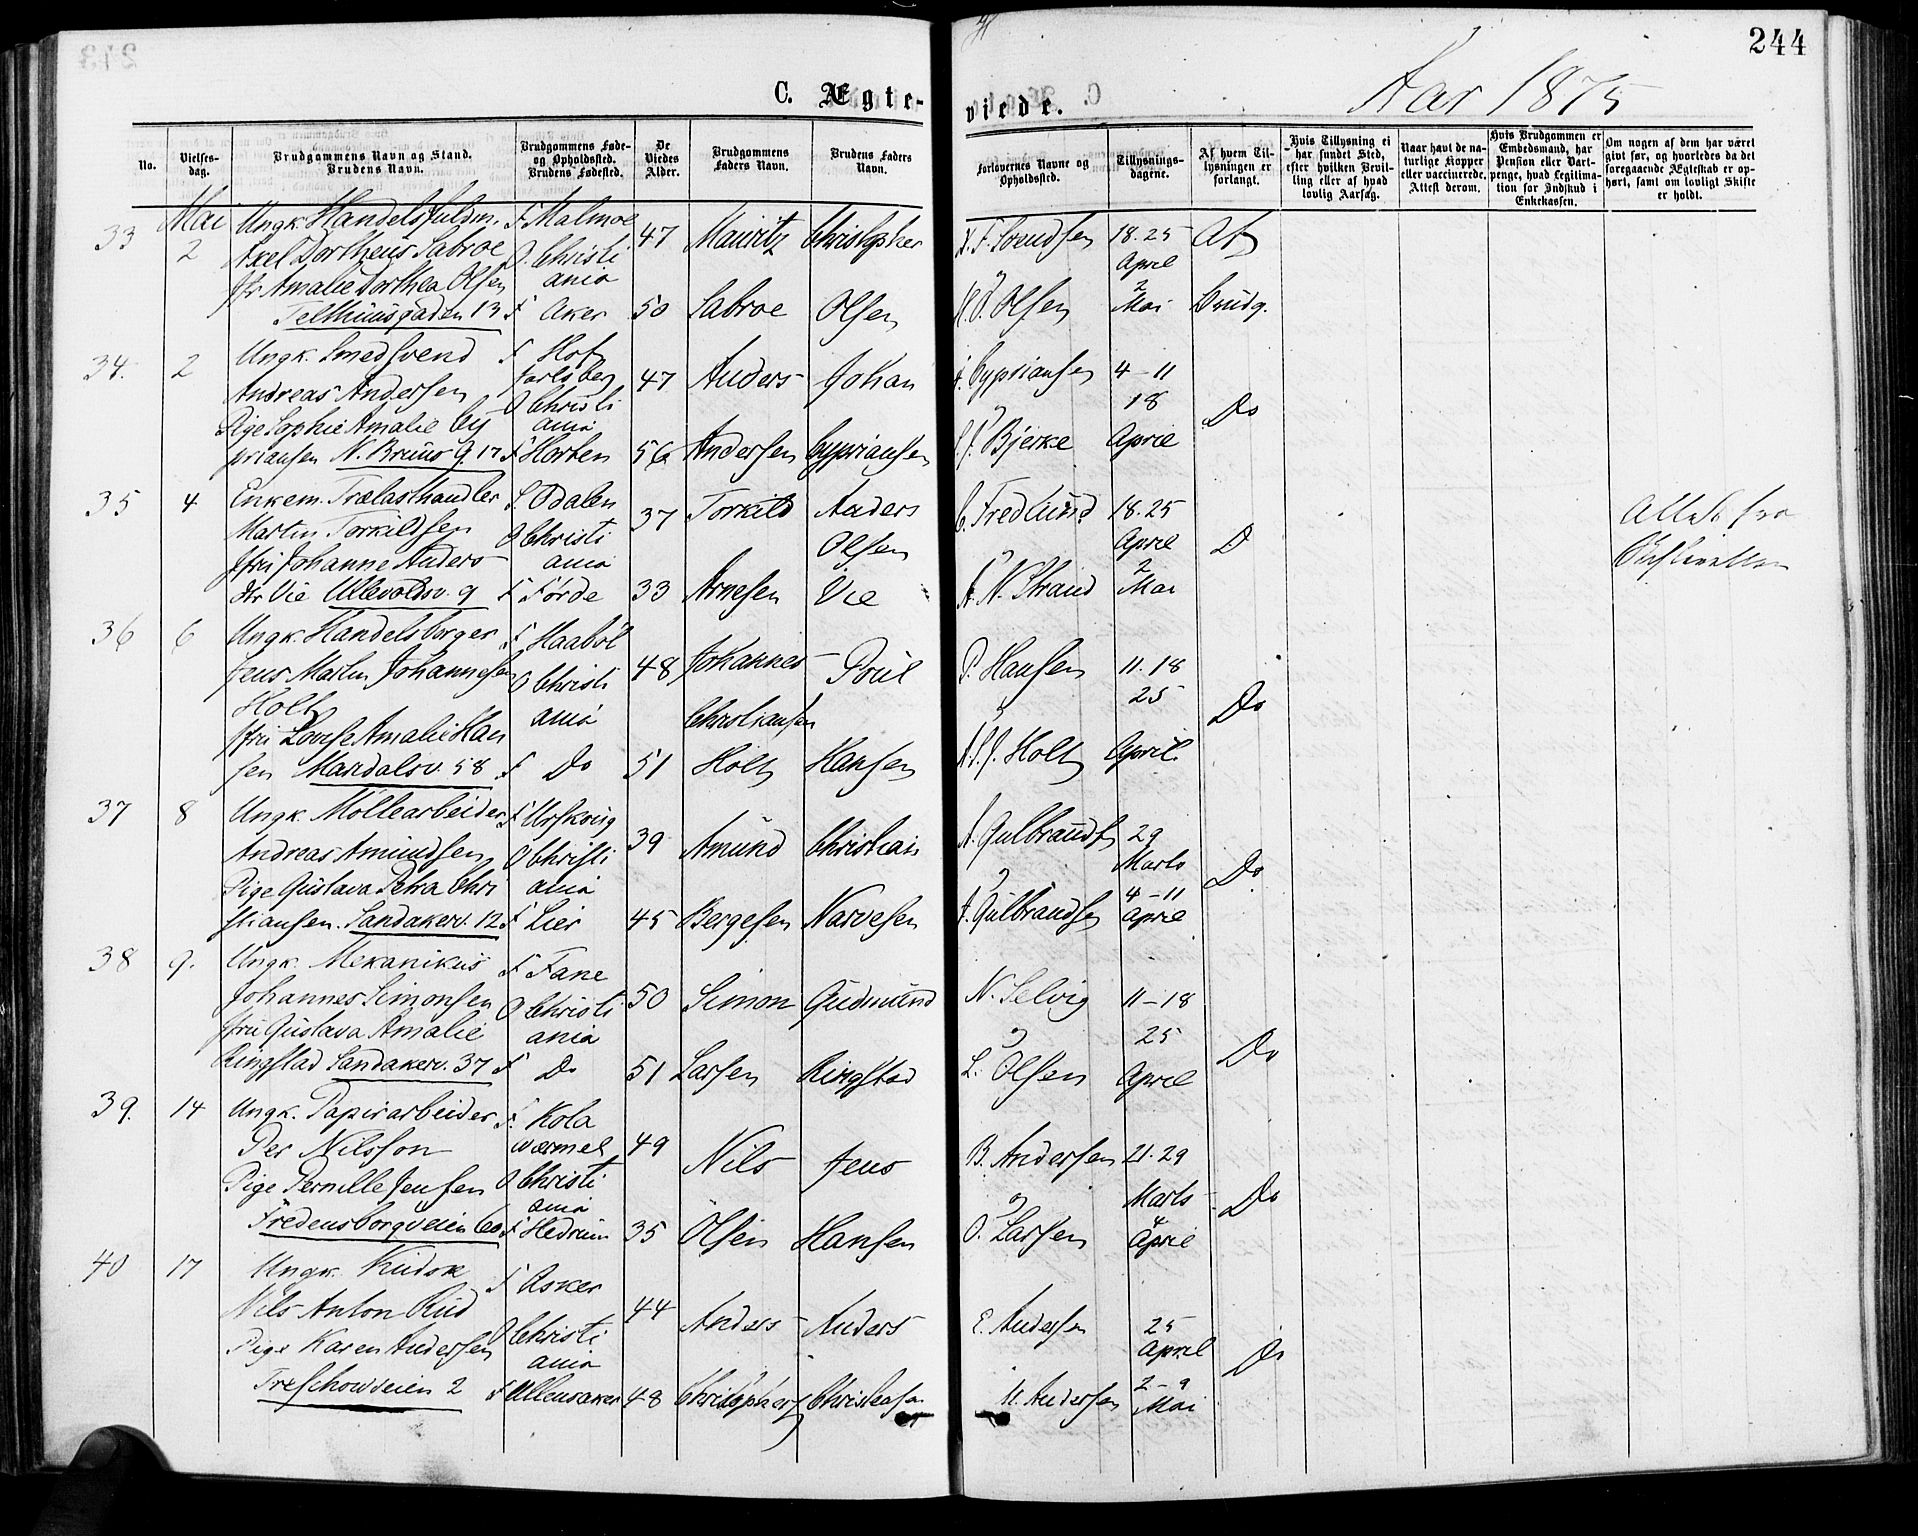 244
C. Ægte-
viede.
Aar 1875
No.
Vielses-
dag.
Brudgommens Navn og Stand.
Brudens Navn.
Brudgommens Føde-
og Opholdssted.
Brudens Fødested.
De
Viedes
Alder.
Brudgommens
Faders Navn.
Brudens Faders
Navn.
Forlovernes Navne og
Opholdssted.
Tillysnings-
dagene.
Af hvem Til-
lysningen er
forlangt.
Hvis Tillysning ei
har fundet Sted,
efter hvilken Bevil-
ling eller af hvad
lovlig Aarsag.
Naar havt de na-
turlige Kopper
eller vaccinerede.
Attest derom.
Hvis Brudgommen er
Embedsmand, har
Pension eller Vart-
penge, hvad Legitima-
tion for Indskud i
Enkekassen.
Om nogen af dem har været
givt før, og hvorledes da det
foregaaende Ægteskab er op-
hørt, samt om lovligt Skifte
er holdt.
33
Mai
2
Ungk. Handelsfuldm.
Axel Dortheus Sabroe
Jfr Amalie Dorthea Olsen
Telthuusgaden 13
F Malmøe
O. Christi
ania
F Aker
47
50
Mauritz
Sabroe
Christopher
Olsen
N. F. Svendsen
H. O. Olsen
18. 25
April
2
Mai
Af
brudg.
34.
2
Ungk. Smed Svend
Andreas Andersen
Pige Sophie Amalie Cy
priansen N. Bruus G. 17
F Hof
Jarlsberg
O Christi
ania
F Horten
47
56
Anders
Andersen
Johan
Cypriansen
Cypriansen
Bjerke
4 - 11
18
April
Do
35
4
Enkem. Trælasthandler
Martin Torkildsen
Jfru Johanne Anders
dtr Vie Ullevoldsv. 9
S. Odalen
O Christi
ania
F Førde
37
33
Torkild
Arnesen
Anders
Olsen
Vie
C. Fredlund
A. N. Strand
18. 25
April
2
Mai
D
Attest fra
Skifteretten
36
6
Ungk. Handelsborger
Jens Martin Johannesen
Holt
Jfru Lovise Amalie Han
sen Maridalsv. 58
F Haabøl
O Christi
ania
F Do
48
51
Johannes
Christiansen
Holt
Poul
Hansen
P. Hansen
Holt
11. 18
25
April
Do
37
8
Ungk. Møllearbeider
Andreas Amundsen
Pige Gustava Petra Chri
stiansen. Sandakerv. 12
F Urskoug
O Christi
ania
F Lier
39
45
Amund
Bergesen
Christian
Narvesen
A. Gulbrands
Gulbrandsen
29
Marts
4 - 11
April
Do
38
9.
Ungk. Mekanikus
Johannes Simonsen
Jfru Gustava Amalie
Ringstad Sandakerv. 37
F Fane
O Christi
ania
F Do
50
51
Simon
Larsen
Gudmund
Ringstad
N. Selvig
L. Olsen
11 - 18
25
April
Do
39.
14
Ungk. Papirarbeider
Per Nilsson
Pige Pernille Jensen
Fredensborgveien 60
F. Kola
wærmel
O Christi
ania
F Hedrum
49
35
Nils
Olsen
Jens
Hansen
B. Andersen
O. Larsen
21. 29
Marts
4
April
Do
40
17
Ungk. Kudsk
Nils Anton Rud
Pige Karen Andersen
Treschowveien 2
F Asker
O Christi
ania
F Ullensaker
44
48
Anders
Christophers
Anders
Christensen
E. Andersen
M. Andersen
25
April
2 - 9
Mai
Do